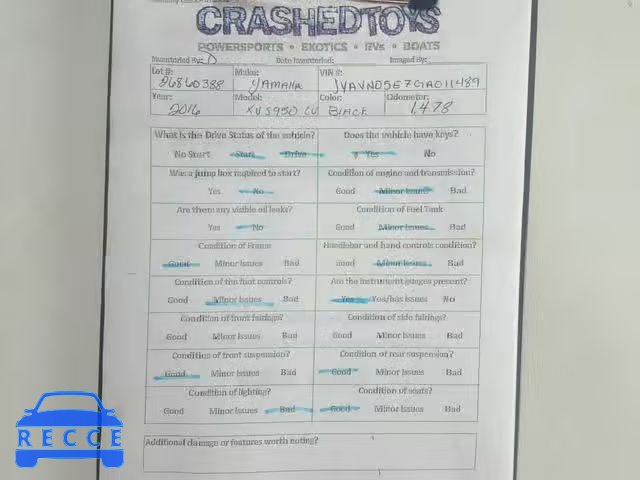 CRASHEDTOYS
POWERSPORTS • EXOTICS • RVs • BOATS
Inventoried By: D Date Inventoried: Imaged By:
Lot #: Make: VIN #:
26860388 YAMAHA JYAVN05E7GA011489
Year: Model: Color: Odometer:
2016 XVS950 CU BLACK 1,478
What is the Drive Status of the vehicle? Does the vehicle have keys?
No Start Start Drive Yes No
Was a jump box required to start? Condition of engine and transmission?
Yes No Good Minor Issues Bad
Are there any visible oil leaks? Condition of Fuel Tank
Yes No Good Minor Issues Bad
Condition of Frame Handlebar and hand controls condition?
Good Minor Issues Bad Good Minor Issues Bad
Condition of the foot controls? Are the instrument gauges present?
Good Minor Issues Bad Yes Yes/has issues No
Condition of front fairings? Condition of side fairings?
Good Minor Issues Bad Good Minor Issues Bad
Condition of front suspension? Condition of rear suspension?
Good Minor Issues Bad Good Minor Issues Bad
Condition of lighting? Condition of seats?
Good Minor Issues Bad Good Minor Issues Bad
Additional damage or features worth noting?
RECCE